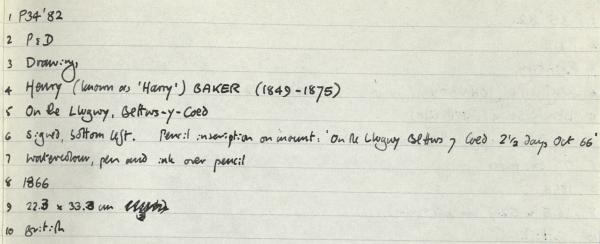 1 P34'82
2 P&D
3 Drawing
4 Henry (known as 'Harry') BAKER (1849-1875)
5 On the Llugwy, Bettws-y-Coed
6 Signed, bottom left. Pencil inscription on mount: 'On the Llugwy Bettws y Coed 2½ days Oct 66'
7 Watercolour, pen and ink over pencil
8 1866
9 22.3 x 33.3 cm
10 British